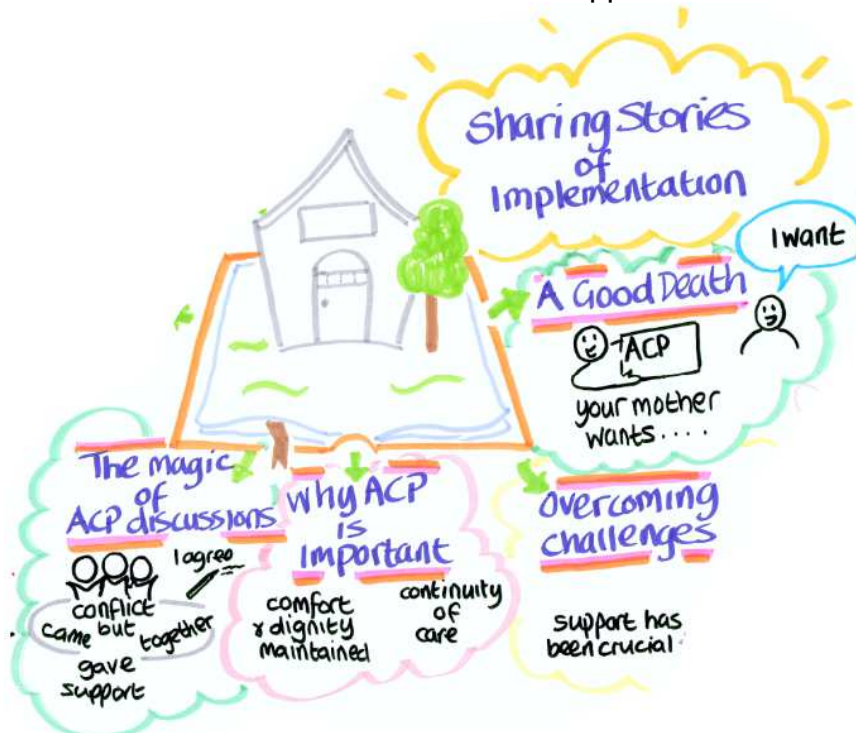 Sharing Stories
of
Implementation
I want
A Good Death
ACP
your mother
wants....
The magic
of
ACP discussions
I agree
conflict
came but together
gave
support
Why ACP
is
Important
comfort
& dignity
maintained
continuity
of
care
overcoming
challenges
support has
been crucial